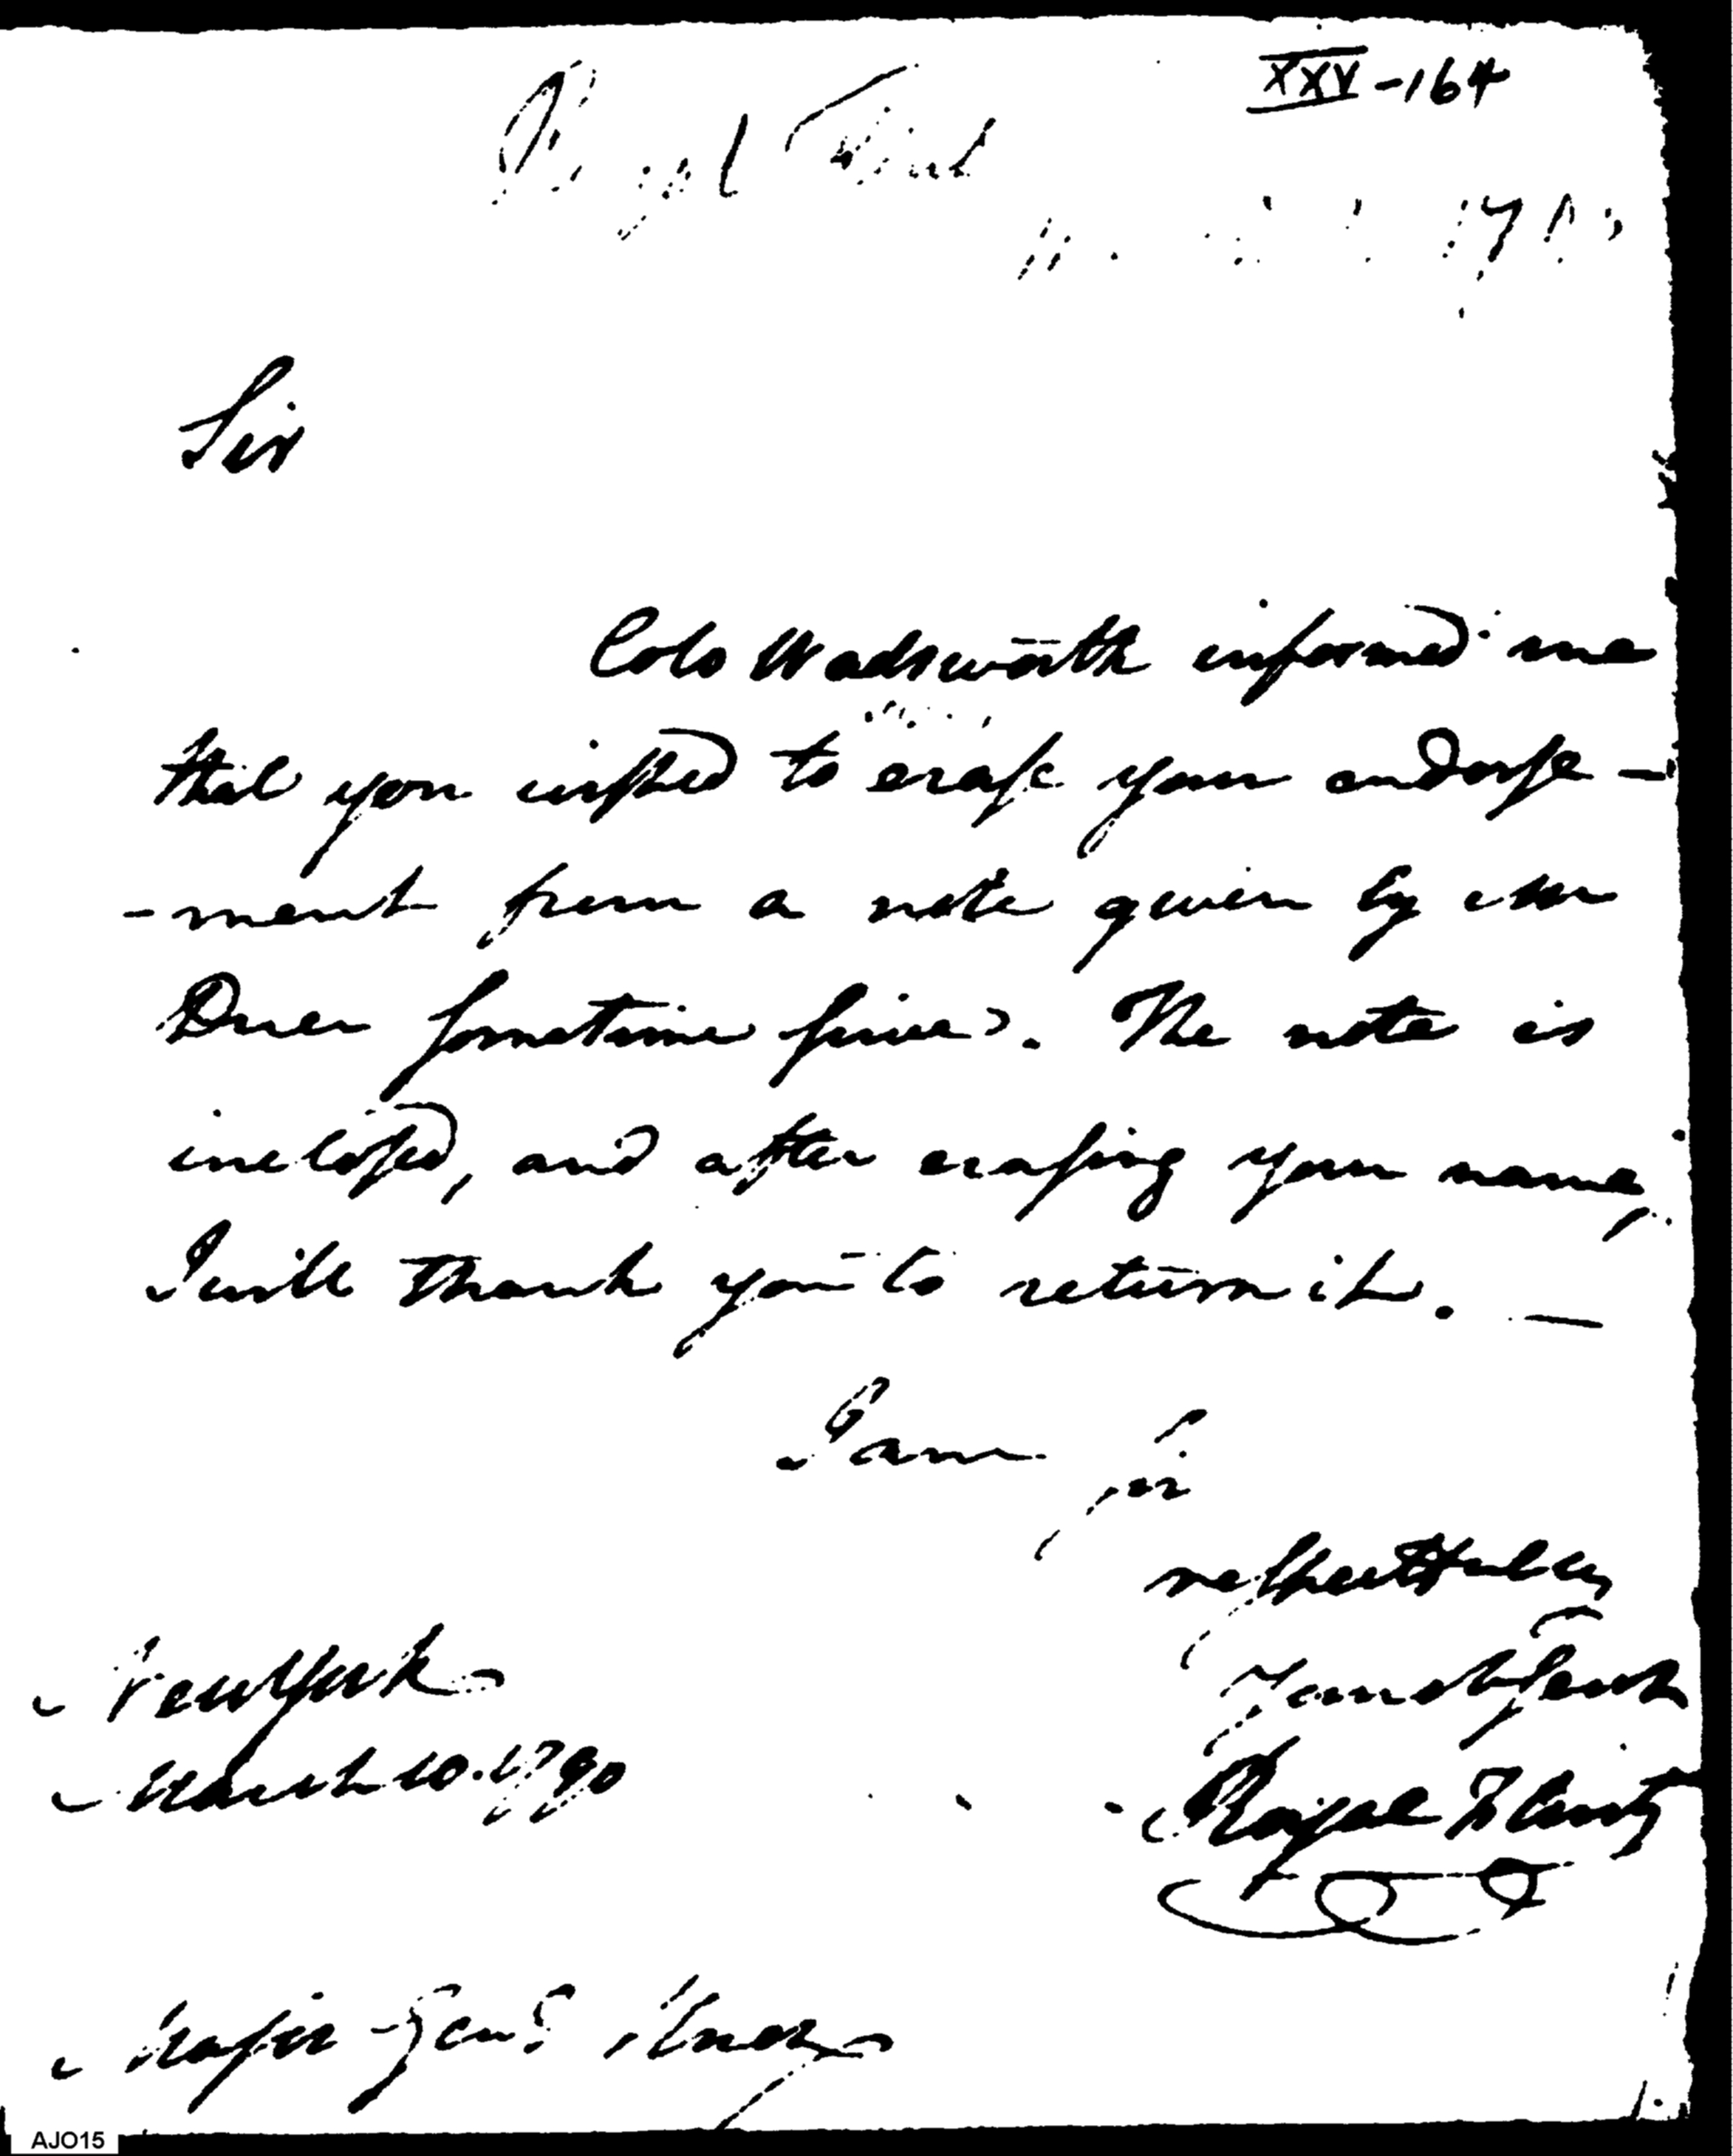 XXV-164
Royal Flint
17
Sir
Colo Wadsworth informed me
that you wished to erase your endorse-
-ment from a note given by Mr
Duer sometime since. The note is
inclosed, and after erasing your name,
I will thank you to return it. —
I am Sir
respectfully
Your Obt Servt
New York
March 10. 1790
Royal Flint
Major Genl Knox
AJO15